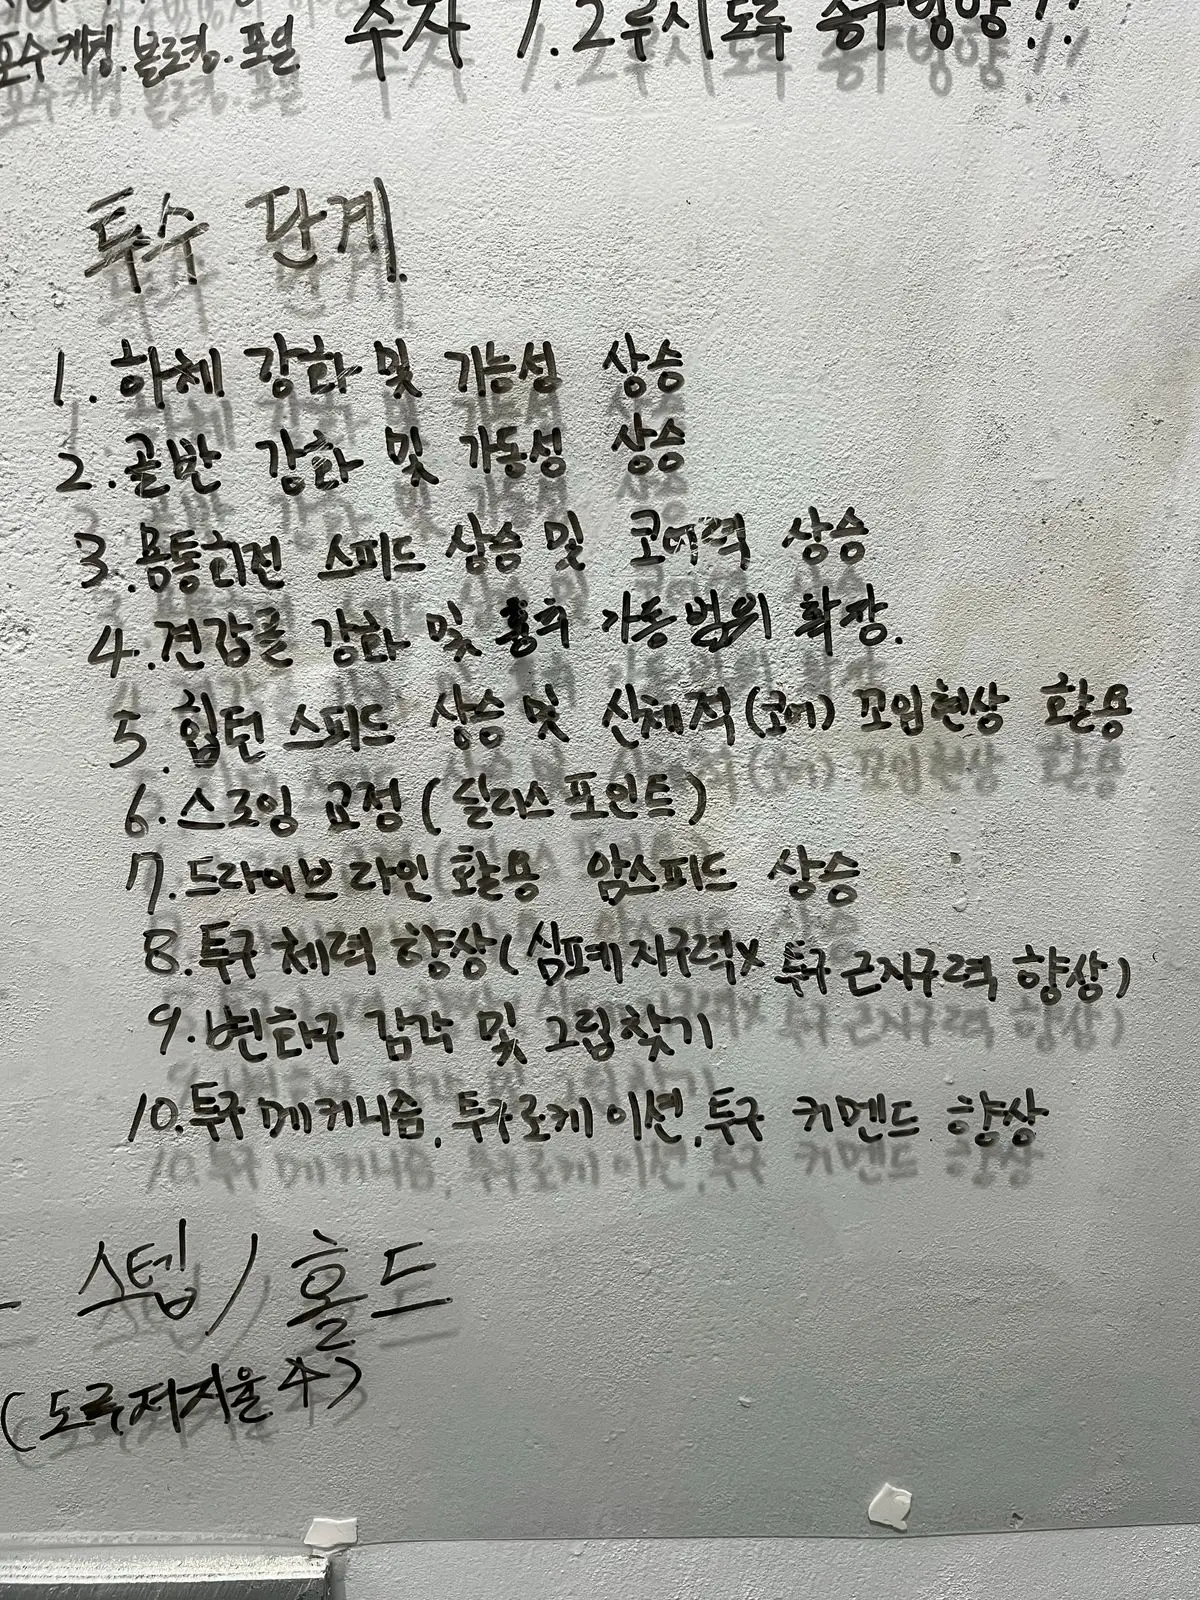 포수 캐칭. 블로킹. 포일
주자 1.2루시 도루 송구방향??
투수 단계.
1. 하체 강화 및 가능성 상승
2. 골반 강화 및 가동성 상승
3. 몸통회전 스피드 상승 및 코어력 상승
4. 견갑골 강화 및 흉추 가동범위 확장.
5. 힙턴 스피드 상승 및 신체적(코어) 꼬임현상 활용
6. 스로잉 교정 (릴리스 포인트)
7. 드라이브라인 활용 암스피드 상승
8. 투구 체력 향상 (심폐지구력x 투구 근지구력 향상)
9. 변화구 감각 및 그립찾기
10. 투구 메커니즘, 투구로케이션, 투구 커멘드 향상
- 스텝 / 홀드
(도루저지율 수)